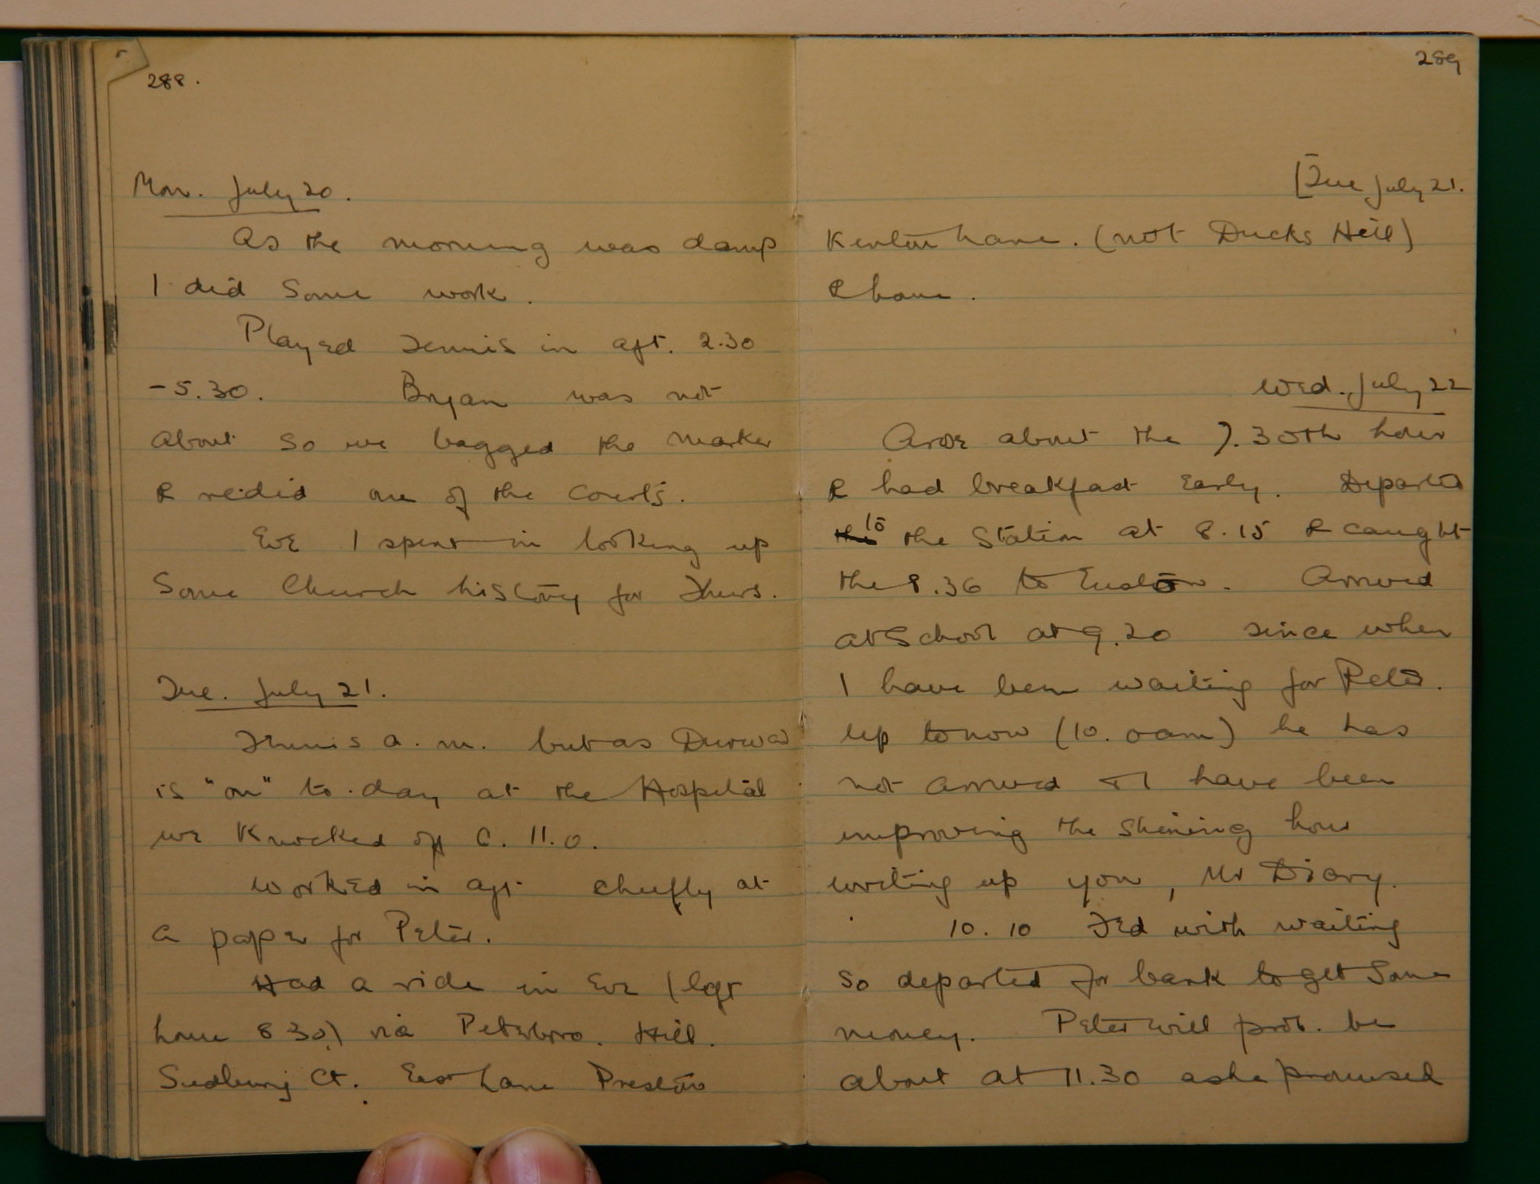 288.
Mon. July 20.
As the morning was damp
I did some work.
Played Tennis in aft. 2.30
-5.30. Bryan was not
about so we bagged the marker
& redid one of the courts.
Eve I spent in looking up
Some Church history for Thurs.
Tue. July 21.
Tennis a.m. but as
is "on" to-day at the Hospital
we knocked off c. 11.0.
Worked in aft. chiefly at
a paper for Peter.
Had a ride in Eve (left
home 8 30) via Peterboro. Hill.
Sudbury Ct. East Lane Preston
289
[Tue July 21.
Kenton Lane. (not Ducks Hill)
& home.
Wed. July 22
Arose about the 7.30th hour
& had breakfast early. Departed
the to the Station at 8.15 & caught
the 8.36 to Euston. Arrived
at School at 9.20 since when
I have been waiting for Peter.
Up to now (10.0am) he has
not arrived & I have been
improving the shining hour
writing up you, Mr Diary.
10.10 Fed with waiting
so departed for bank to get some
money. Peter will prob. be
about at 11.30 as he promised